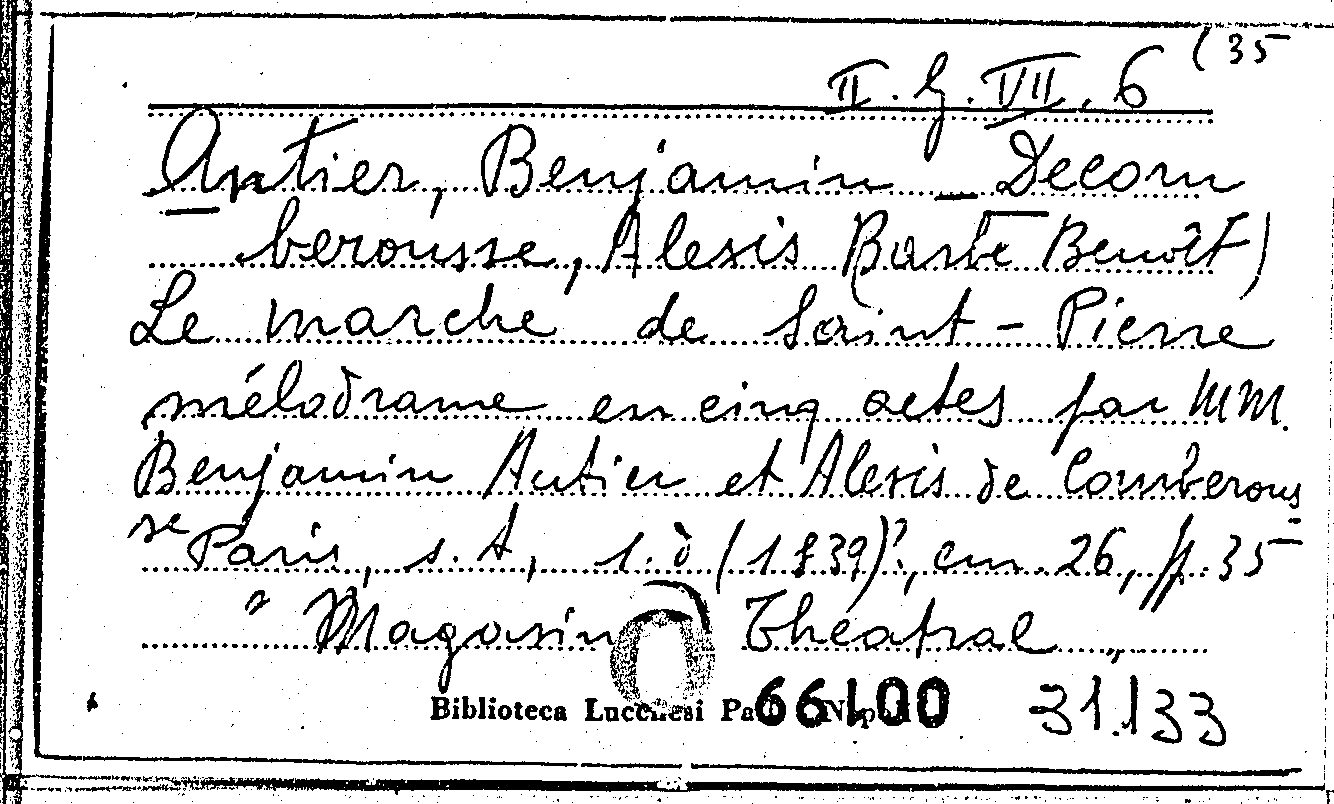 II. G. VII. 6 (35
Antier, Benjamin _ Decom
berousse, Alexis (Barbe Benoît)
Le marche de Saint-Pierre
mélodrame en cinq actes par MM.
Benjamin Antier et Alexis de Comberous
se Paris, s.t, s.d (1839)?, cm. 26, pp. 35
" Magasin Theatral "
Biblioteca Lucchesi Palli Napoli
66100 31.133